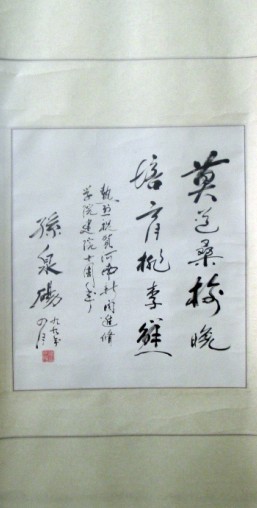 莫道桑榆晚
培育桃李鲜
热烈祝贺河南新闻进修
学院建院十周年
孙泉砀
九九年
四月